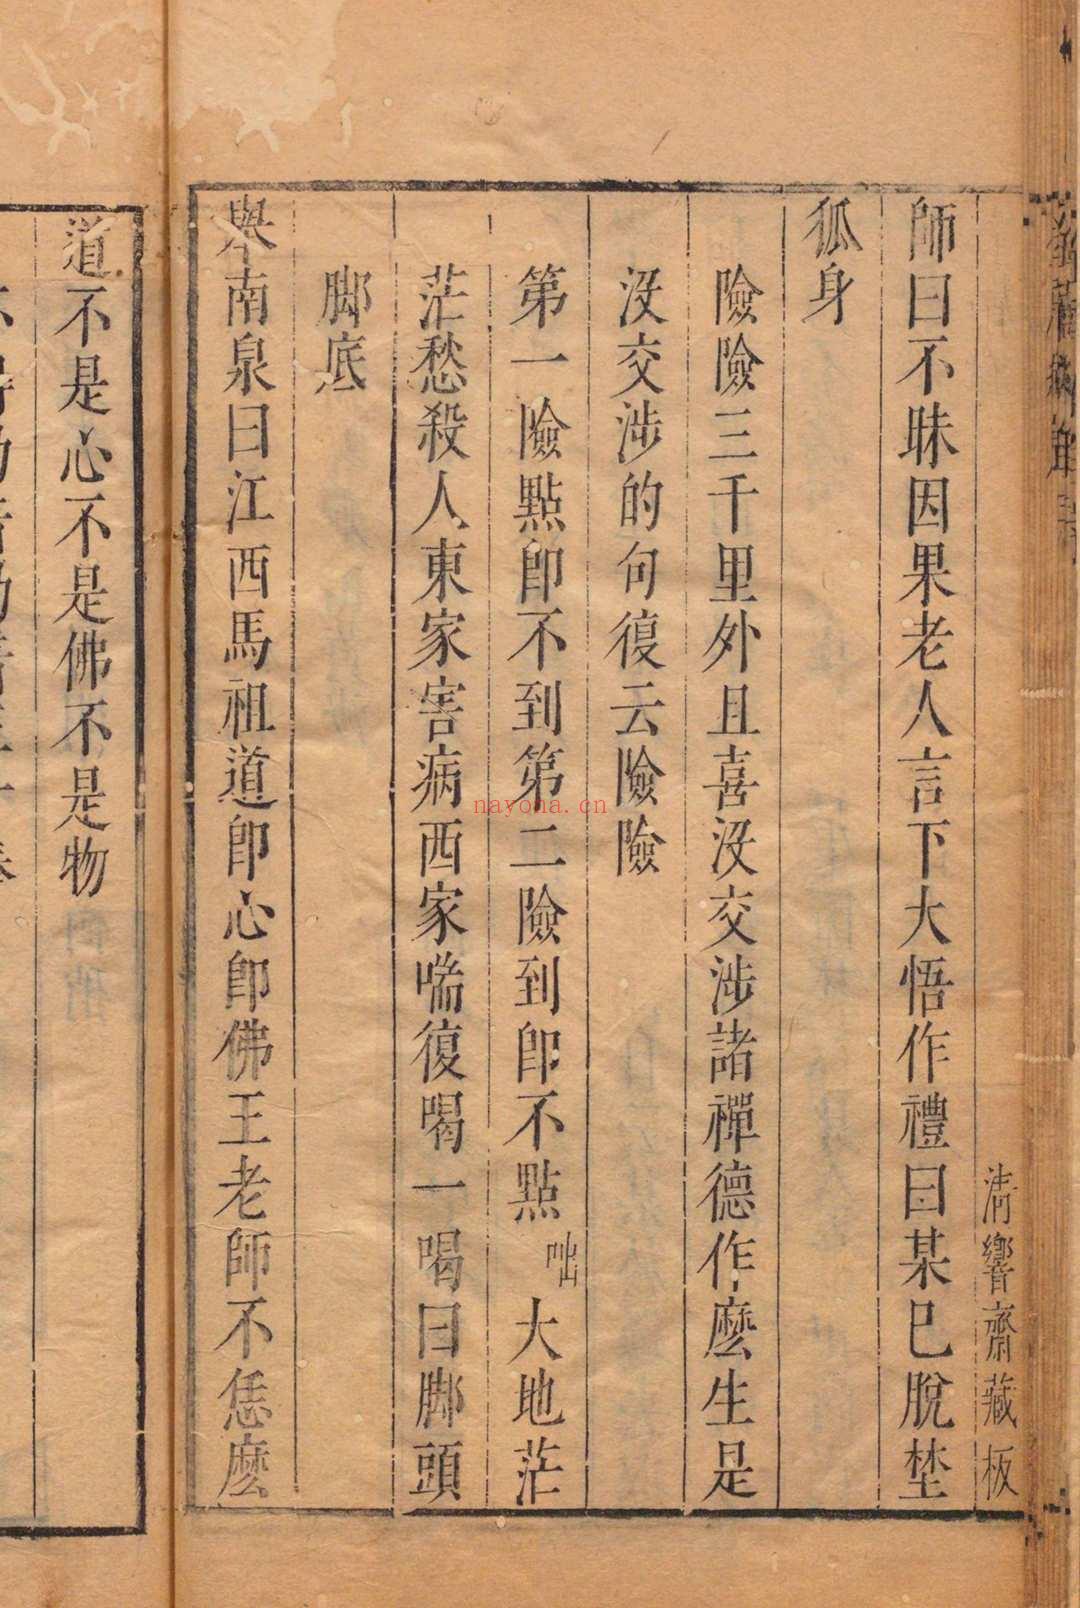 清響齋藏板
師曰不昧因果老人言下大悟作禮曰某已脫埜
狐身
險險三千里外且喜沒交涉諸禪德作麼生是
沒交涉的句復云險險
第一險點卽不到第二險到卽不點咄大地茫
茫愁殺人東家害病西家喘復喝一喝曰脚頭
脚底
舉南泉曰江西馬祖道卽心卽佛王老師不恁麼
道不是心不是佛不是物
nayona.cn